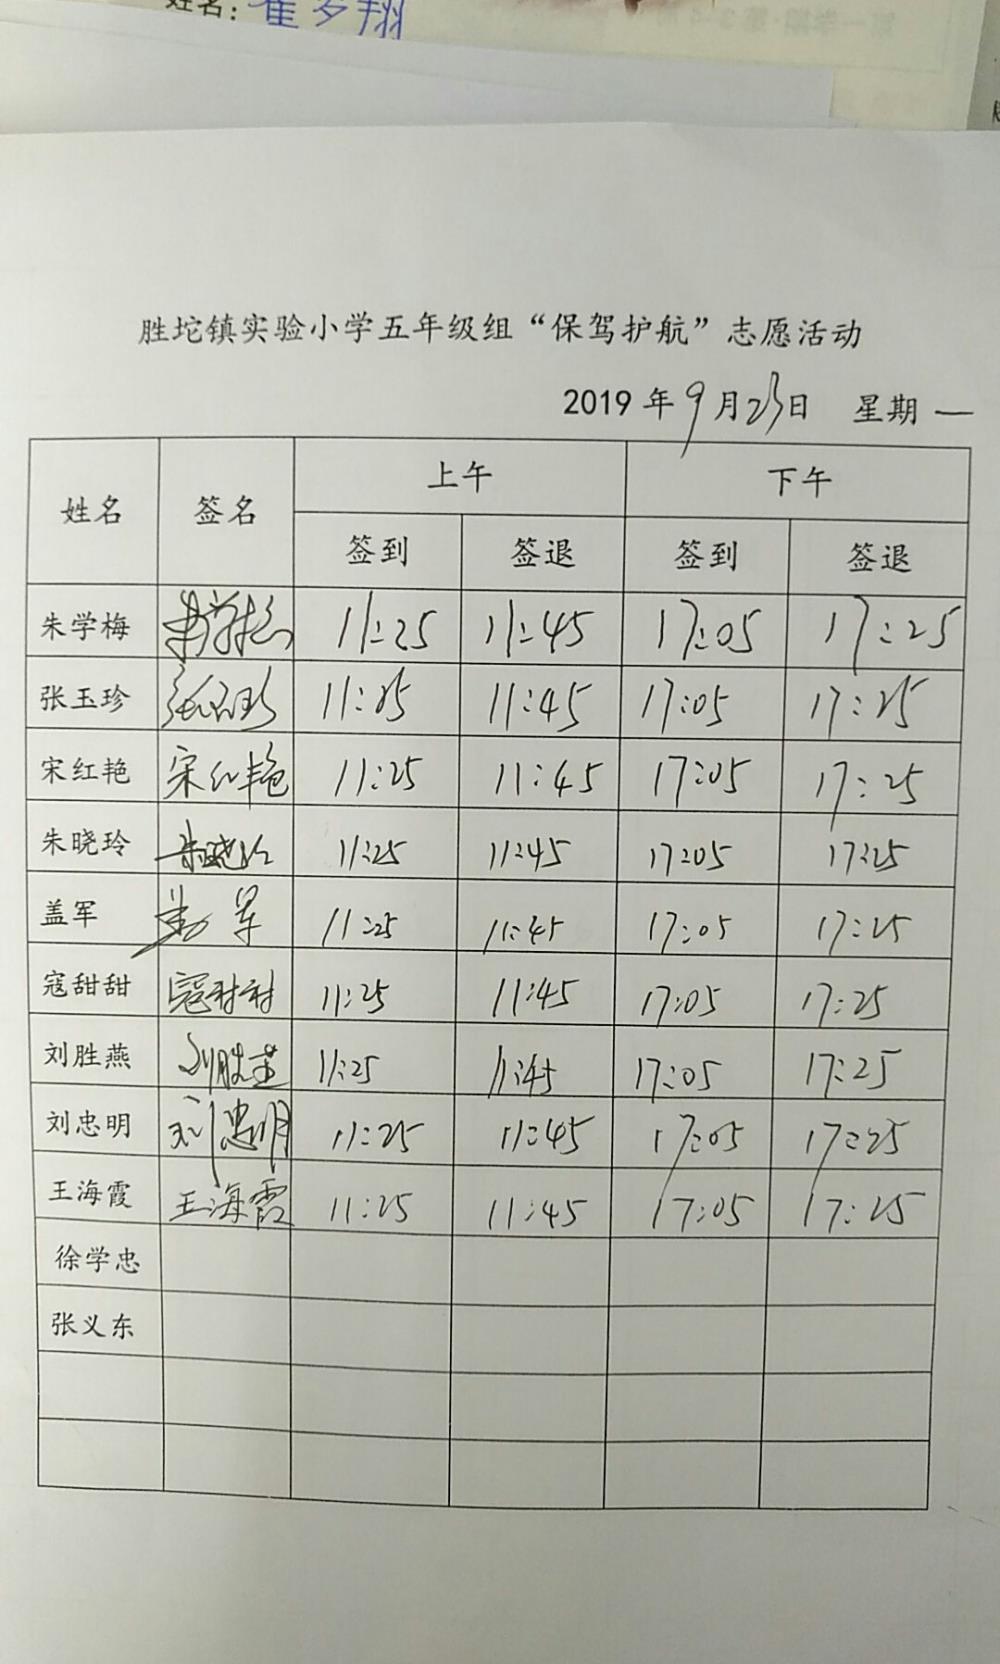 姓名:崔梦翔
胜坨镇实验小学五年级组“保驾护航”志愿活动
2019年9月23日 星期一
姓名 签名 上午 下午
签到 签退 签到 签退
朱学梅 朱学梅 11:25 11:45 17:05 17:25
张玉珍 张玉珍 11:25 11:45 17:05 17:25
宋红艳 宋红艳 11:25 11:45 17:05 17:25
朱晓玲 朱晓玲 11:25 11:45 17:05 17:25
盖军 盖军 11:25 11:45 17:05 17:25
寇甜甜 寇甜甜 11:25 11:45 17:05 17:25
刘胜燕 刘胜燕 11:25 11:45 17:05 17:25
刘忠明 刘忠明 11:25 11:45 17:05 17:25
王海霞 王海霞 11:25 11:45 17:05 17:25
徐学忠
张义东